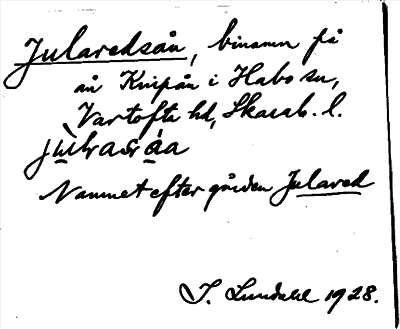 Jularedsån, binamn på
ån Knipån i Habo sn,
Vartofta hd, Skarab. l.
Namnet efter gården Julared
I. Lundahl 1928.